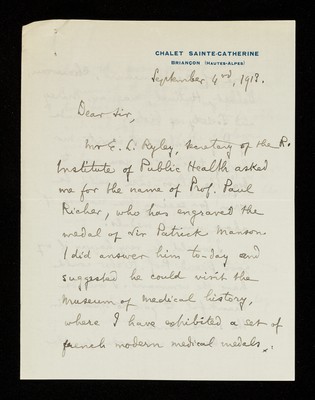 CHALET SAINTE-CATHERINE
BRIANÇON (HAUTES-ALPES)
September 4nd, 1913.
Dear Sir,
Mr E. L. Ryley, secretary of the R.
Institute of Public Health asked
me for the name of Prof. Paul
Richer, who has engraved the
medal of Sir Patrick Manson.
I did answer him to-day and
suggested he could visit the
Museum of medical history,
where I have exhibited a set of
french modern medical medals.